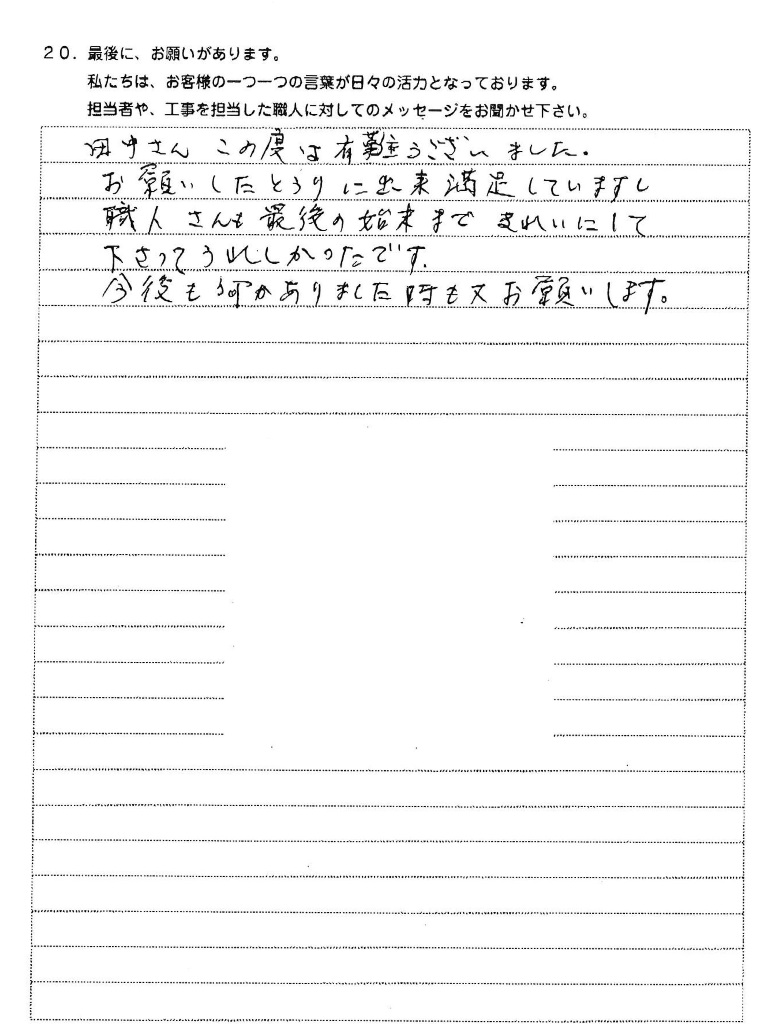 20. 最後に、お願いがあります。
私たちは、お客様の一つ一つの言葉が日々の活力となっております。
担当者や、工事を担当した職人に対してのメッセージをお聞かせ下さい。
田中さん この度は有難うございました。
お願いしたとうりに出来満足していますし
職人さんも最後の始末まできれいにして
下さってうれしかったです.
今後も何かありました時も又お願いします。